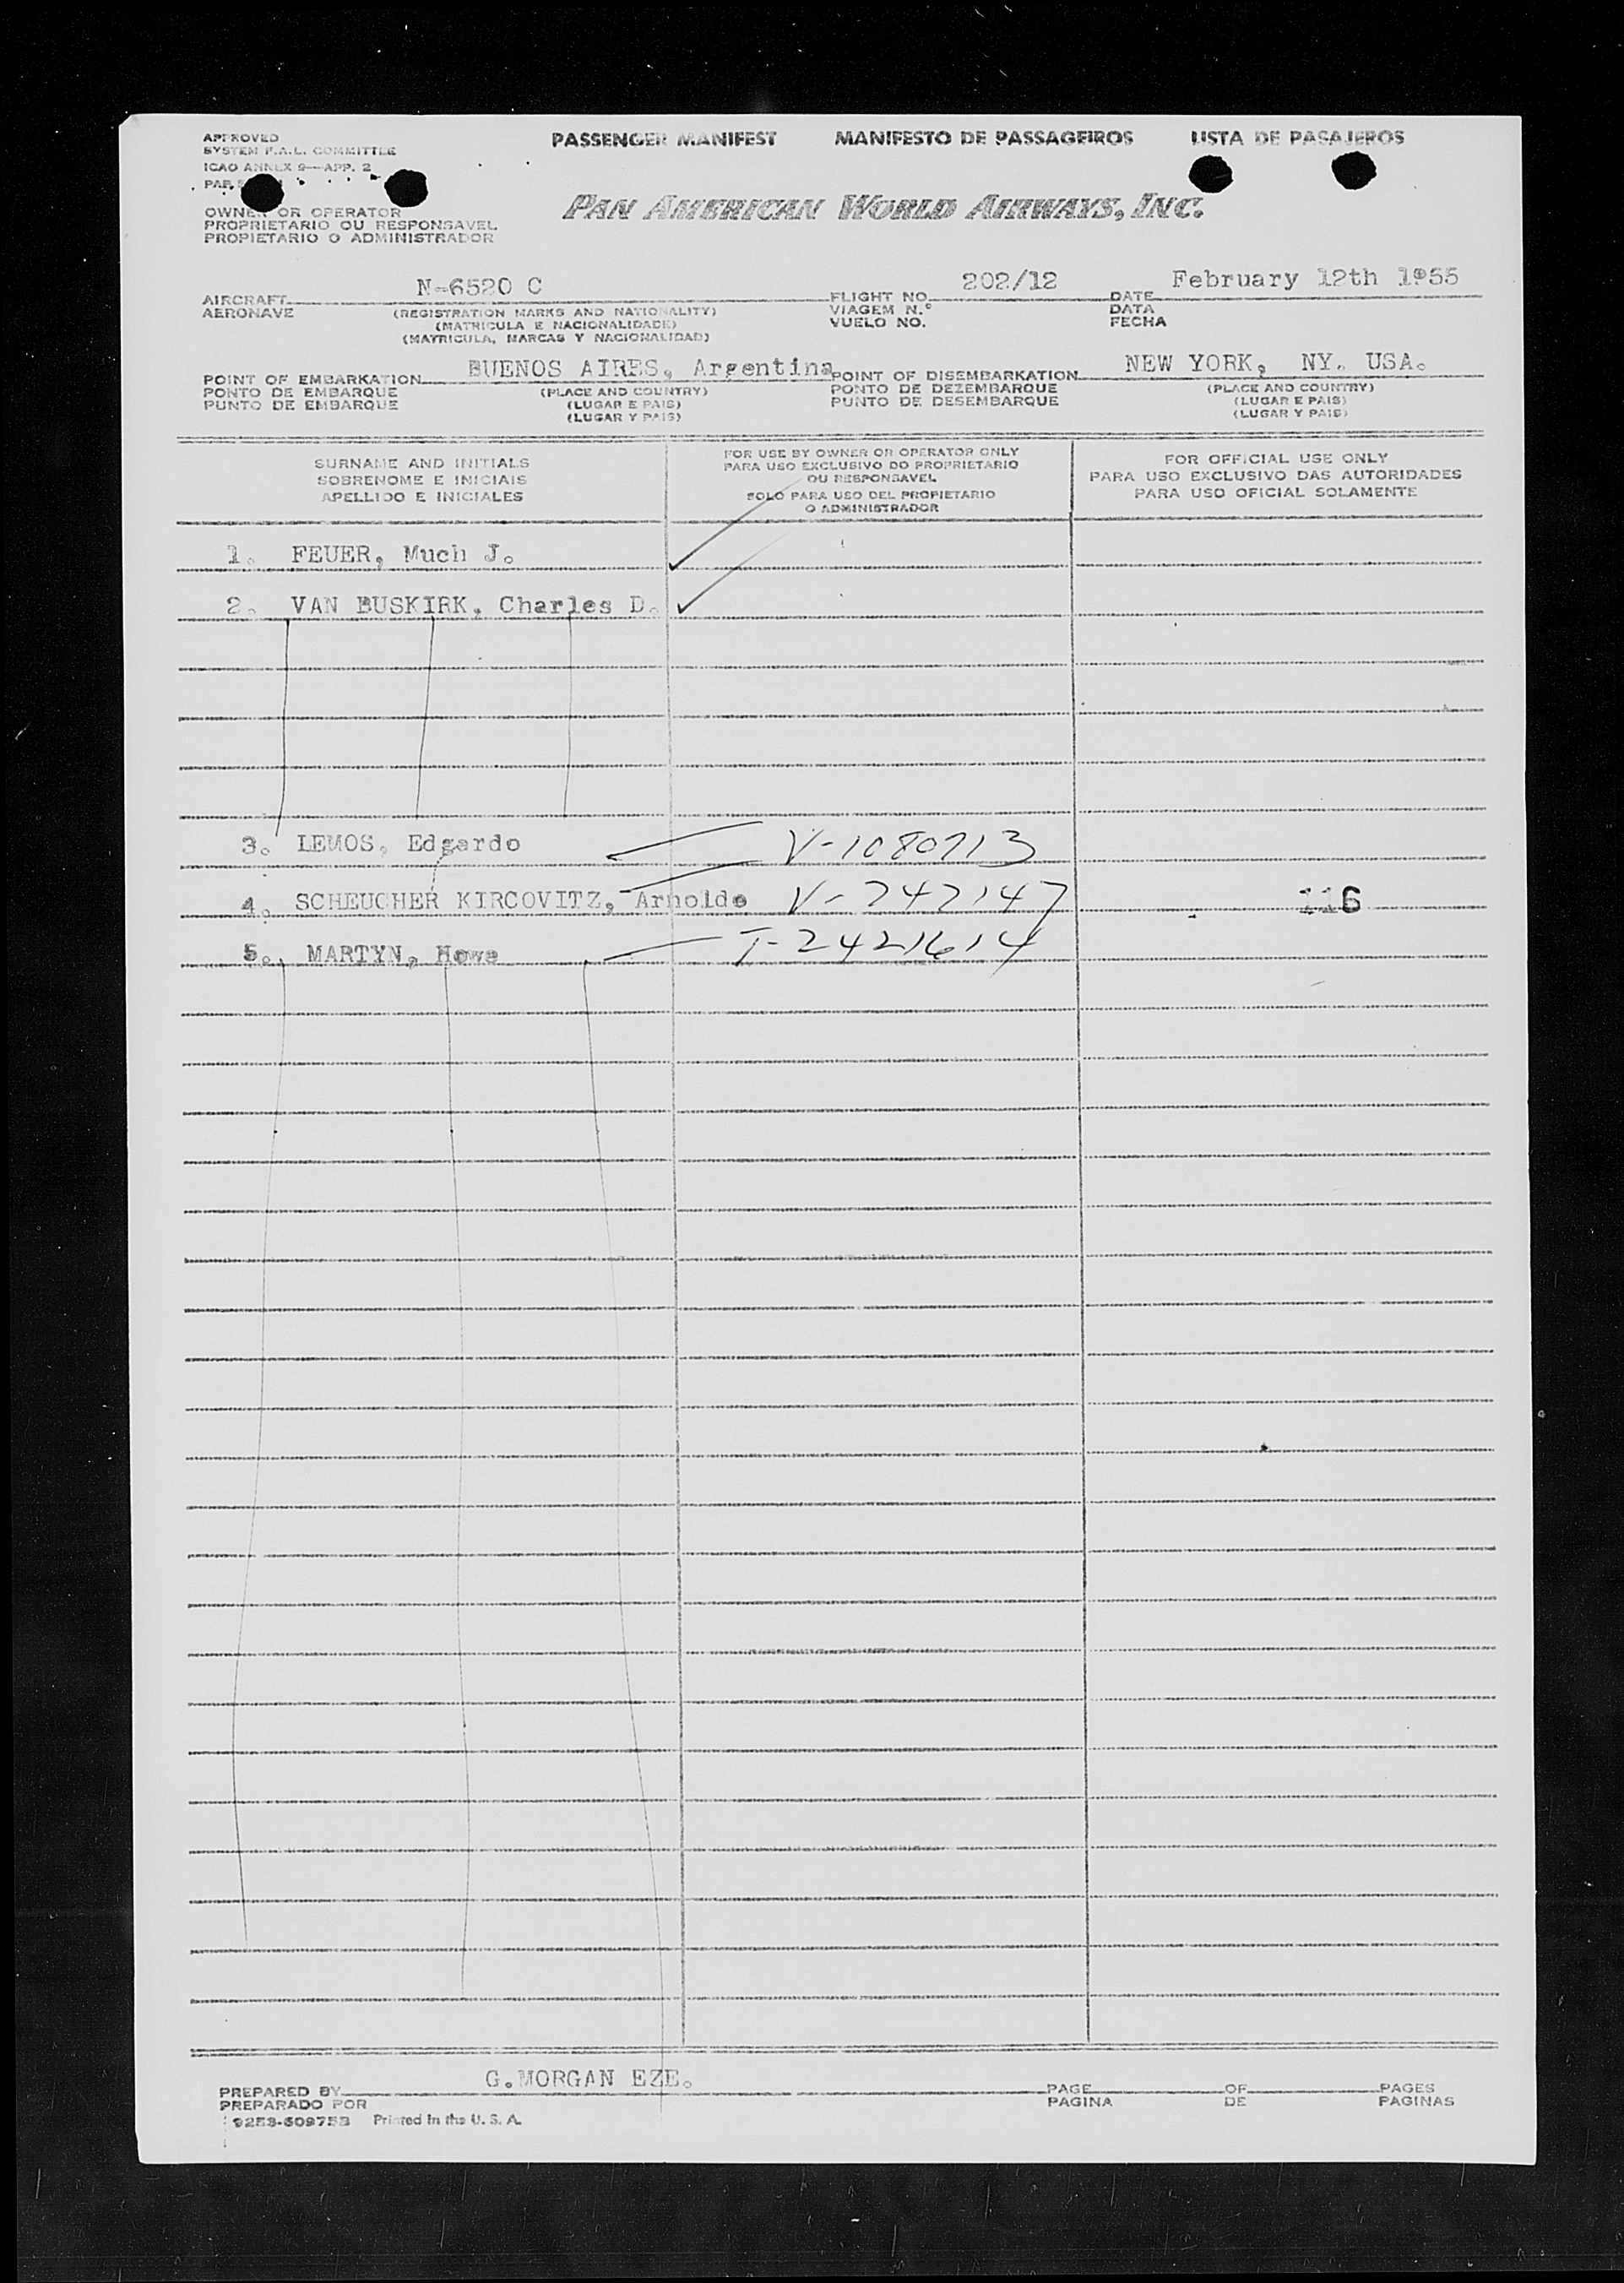 APPROVED
SYSTEM F.A.L. COMMITTEE
ICAO ANNEX 9—APP. 2
PASSENGER MANIFEST MANIFESTO DE PASSAGEIROS LISTA DE PASAJEROS
OWNER OR OPERATOR
PROPRIETARIO OU RESPONSAVEL
PROPIETARIO O ADMINISTRADOR
PAN AMERICAN WORLD AIRWAYS, INC.
AIRCRAFT N-6520 C FLIGHT NO. 202/12 DATE February 12th 1955
AERONAVE (REGISTRATION MARKS AND NATIONALITY) VIAGEM N.° DATA
(MATRICULA E NACIONALIDADE) VUELO NO. FECHA
(MATRICULA, MARCAS Y NACIONALIDAD)
POINT OF EMBARKATION BUENOS AIRES, Argentina POINT OF DISEMBARKATION NEW YORK, NY. USA.
PONTO DE EMBARQUE (PLACE AND COUNTRY) PONTO DE DEZEMBARQUE (PLACE AND COUNTRY)
PUNTO DE EMBARQUE (LUGAR E PAIS) PUNTO DE DESEMBARQUE (LUGAR E PAIS)
(LUGAR Y PAIS) (LUGAR Y PAIS)
SURNAME AND INITIALS
SOBRENOME E INICIAIS
APELLIDO E INICIALES
FOR USE BY OWNER OR OPERATOR ONLY
PARA USO EXCLUSIVO DO PROPRIETARIO
OU RESPONSAVEL
SOLO PARA USO DEL PROPIETARIO
O ADMINISTRADOR
FOR OFFICIAL USE ONLY
PARA USO EXCLUSIVO DAS AUTORIDADES
PARA USO OFICIAL SOLAMENTE
1. FEUER, Much J.
2. VAN BUSKIRK, Charles D.
3. LEMOS, Edgardo V-1080713
4. SCHEUCHER KIRCOVITZ, Arnoldo V-742147 116
5. MARTYN, Howe T-2421614
PREPARED BY G.MORGAN EZE. PAGE OF PAGES
PREPARADO POR PAGINA DE PAGINAS
Printed in the U. S. A.